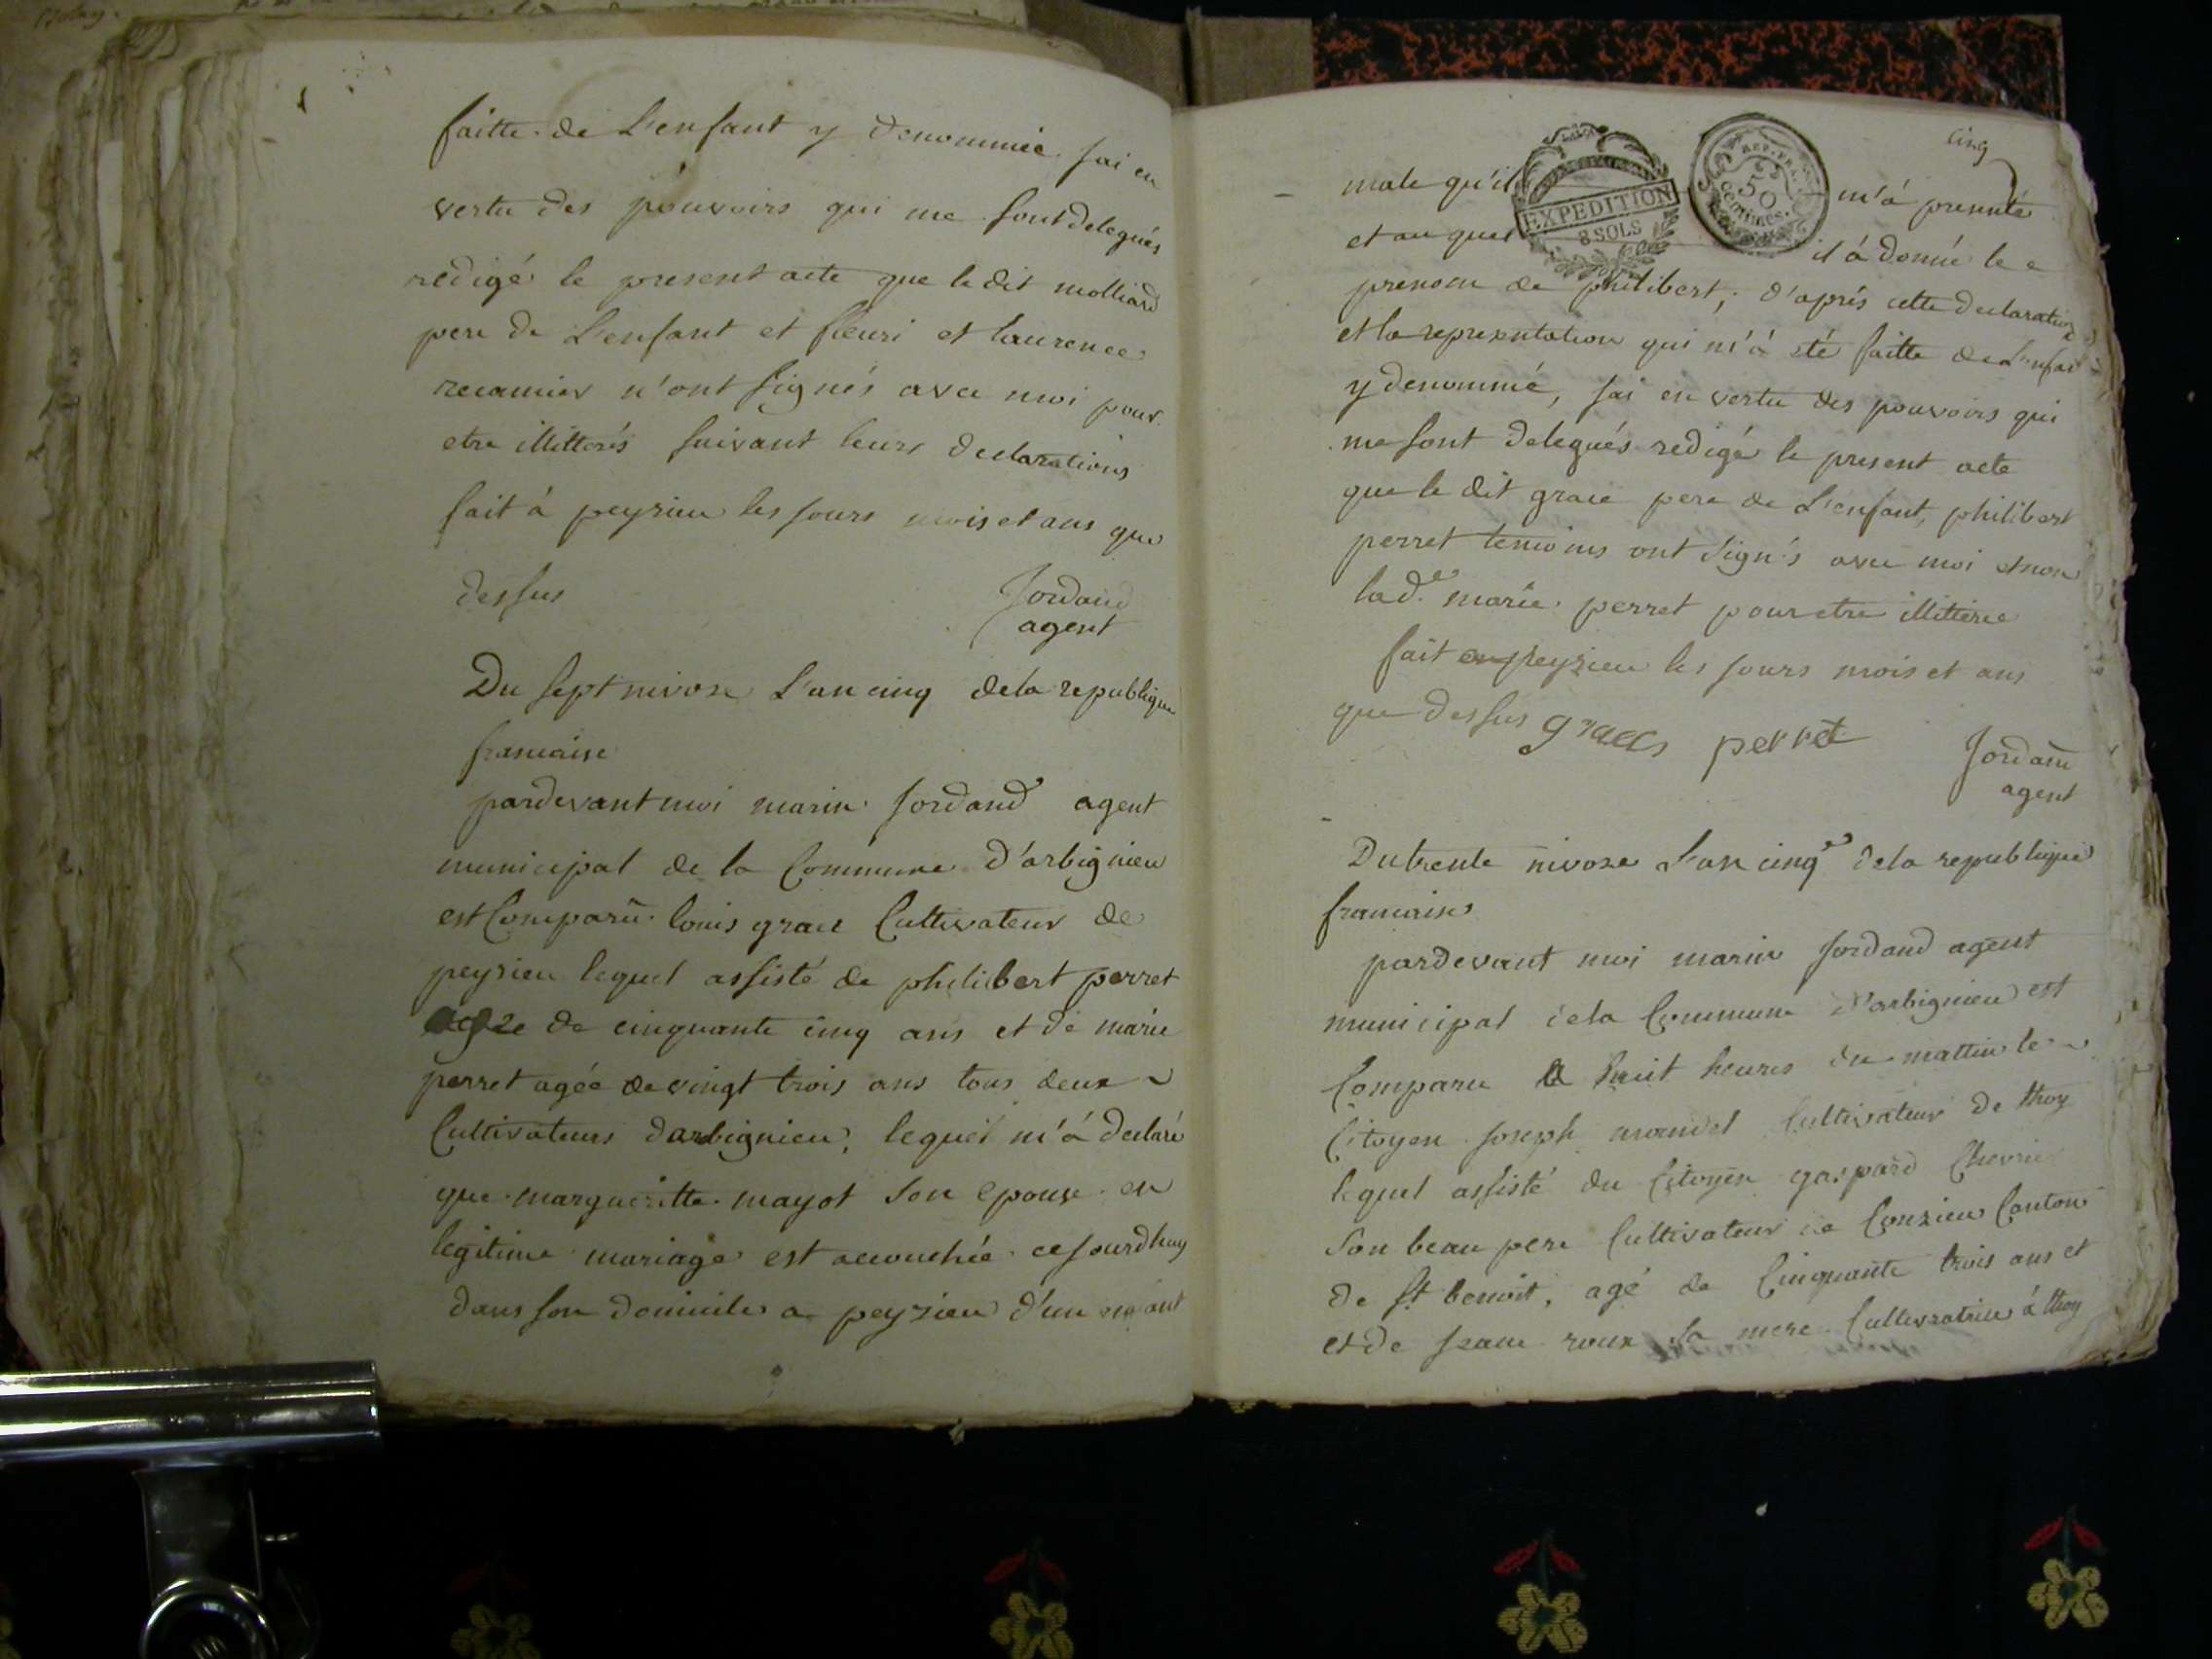 faitte de L'enfant y denommée jai en
vertu des pouvoirs qui me sont delegués
redigé le present acte que le dit molliard
pere de L'enfant et fleuri et laurence
recamier n'ont signés avec moi pour
etre illitterés suivant leurs declarations
fait à peyzieu les jours mois et ans que
dessus
Jordand
agent
Du sept nivose L'an cinq dela republique
francaise
pardevant moi marin Jordand agent
municipal de la Commune d'arbignieu
est Comparu louis grace Cultivateur de
peyzieu lequel assisté de philibert perret
agé de cinquante cinq ans et de marie
perret agée de vingt trois ans tous deux
Cultivateurs darbignieu, lequel m'á declaré
que margueritte mayot son epouse en
legitime mariage est accouchée cejourdhuy
dans son domicile a peyzieu d'un enfant
cinq
male qu'il m'á presenté
et au quel il á donné le
prenom de philibert, d'aprés cette declaration
et la representation qui m'á eté faitte de L'enfant
y denommé, jai en vertu des pouvoirs qui
me sont delegués redigé le present acte
que le dit grace pere de L'enfant, philibert
perret temoins ont signés avec moi et non
lade marie perret pour etre illitterée
fait en peyzieu les jours mois et ans
que dessus graces perret
Jordand
agent
EXPEDITION
8 SOLS
REP. FRA.
50
centimes.
Du trente nivose L'an cinqe dela republique
francaise
pardevant moi marin Jordand agent
municipal dela Commune d'arbignieu est
Comparu a huit heures du mattin le
Citoyen Joseph Cultivateur de thoy
lequel assisté du Citoyen gaspard Chevrier
son beau pere Cultivateur de Conzieu Canton
de St benoit, agé de Cinquante trois ans et
et de jeane roux sa mere Cultivatrice á thoy